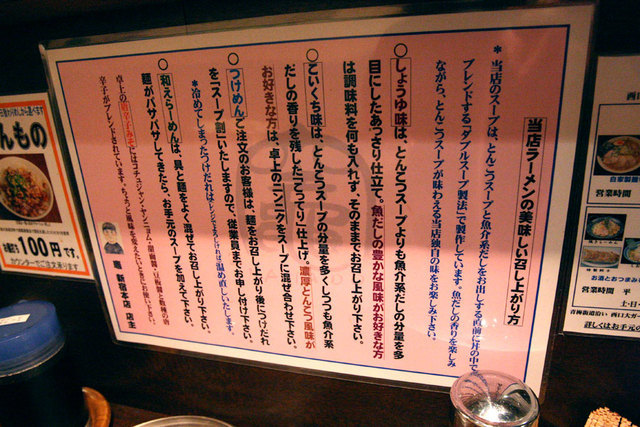 当店ラーメンの美味しい召し上がり方
*当店のスープは、とんこつスープと魚介系だしをお出しする直前に丼の中で
ブレンドする「ダブルスープ製法」で製作しています。魚だしの香りを楽しみ
ながら、とんこつスープが味わえる当店独自の味をお楽しみ下さい。
○しょうゆ味は、とんこつスープよりも魚介系だしの分量を多
目にしたあっさり仕立て。魚だしの豊かな風味がお好きな方
は調味料を何も入れず、そのままでお召し上がり下さい。
○こいくち味は、とんこつスープの分量を多くしつつも魚介系
だしの香りを残した「こってり」仕上げ。濃厚とんこつ風味が
お好きな方は、卓上のニンニクをスープに混ぜ合わせ下さい。
○つけめんご注文のお客様は、麺をお召し上がり後につけだれ
を「スープ割」いたしますので、従業員までお申し付け下さい。
*冷めてしまったつけだれはレンジでよろしければ温め直しいたします。
○和えらーめんは、具と麺をよく混ぜてお召し上がり下さい。
麺がパサパサしてきたら、お手元のスープを加えて下さい。
卓上の唐辛子みそにはコチュジャン・ヤンニョム・
辛子がブレンドされています。ちょっと風味を変えたいときにお使い下さい。
竈 新宿本店 店主
んもの
100円です。
カウンターでご注文承ります
西口
自家製麺
営業時間
お酒とおつまみ
営業時間 平
土日
青梅街道沿い 西口大ガード
詳しくはお手元の